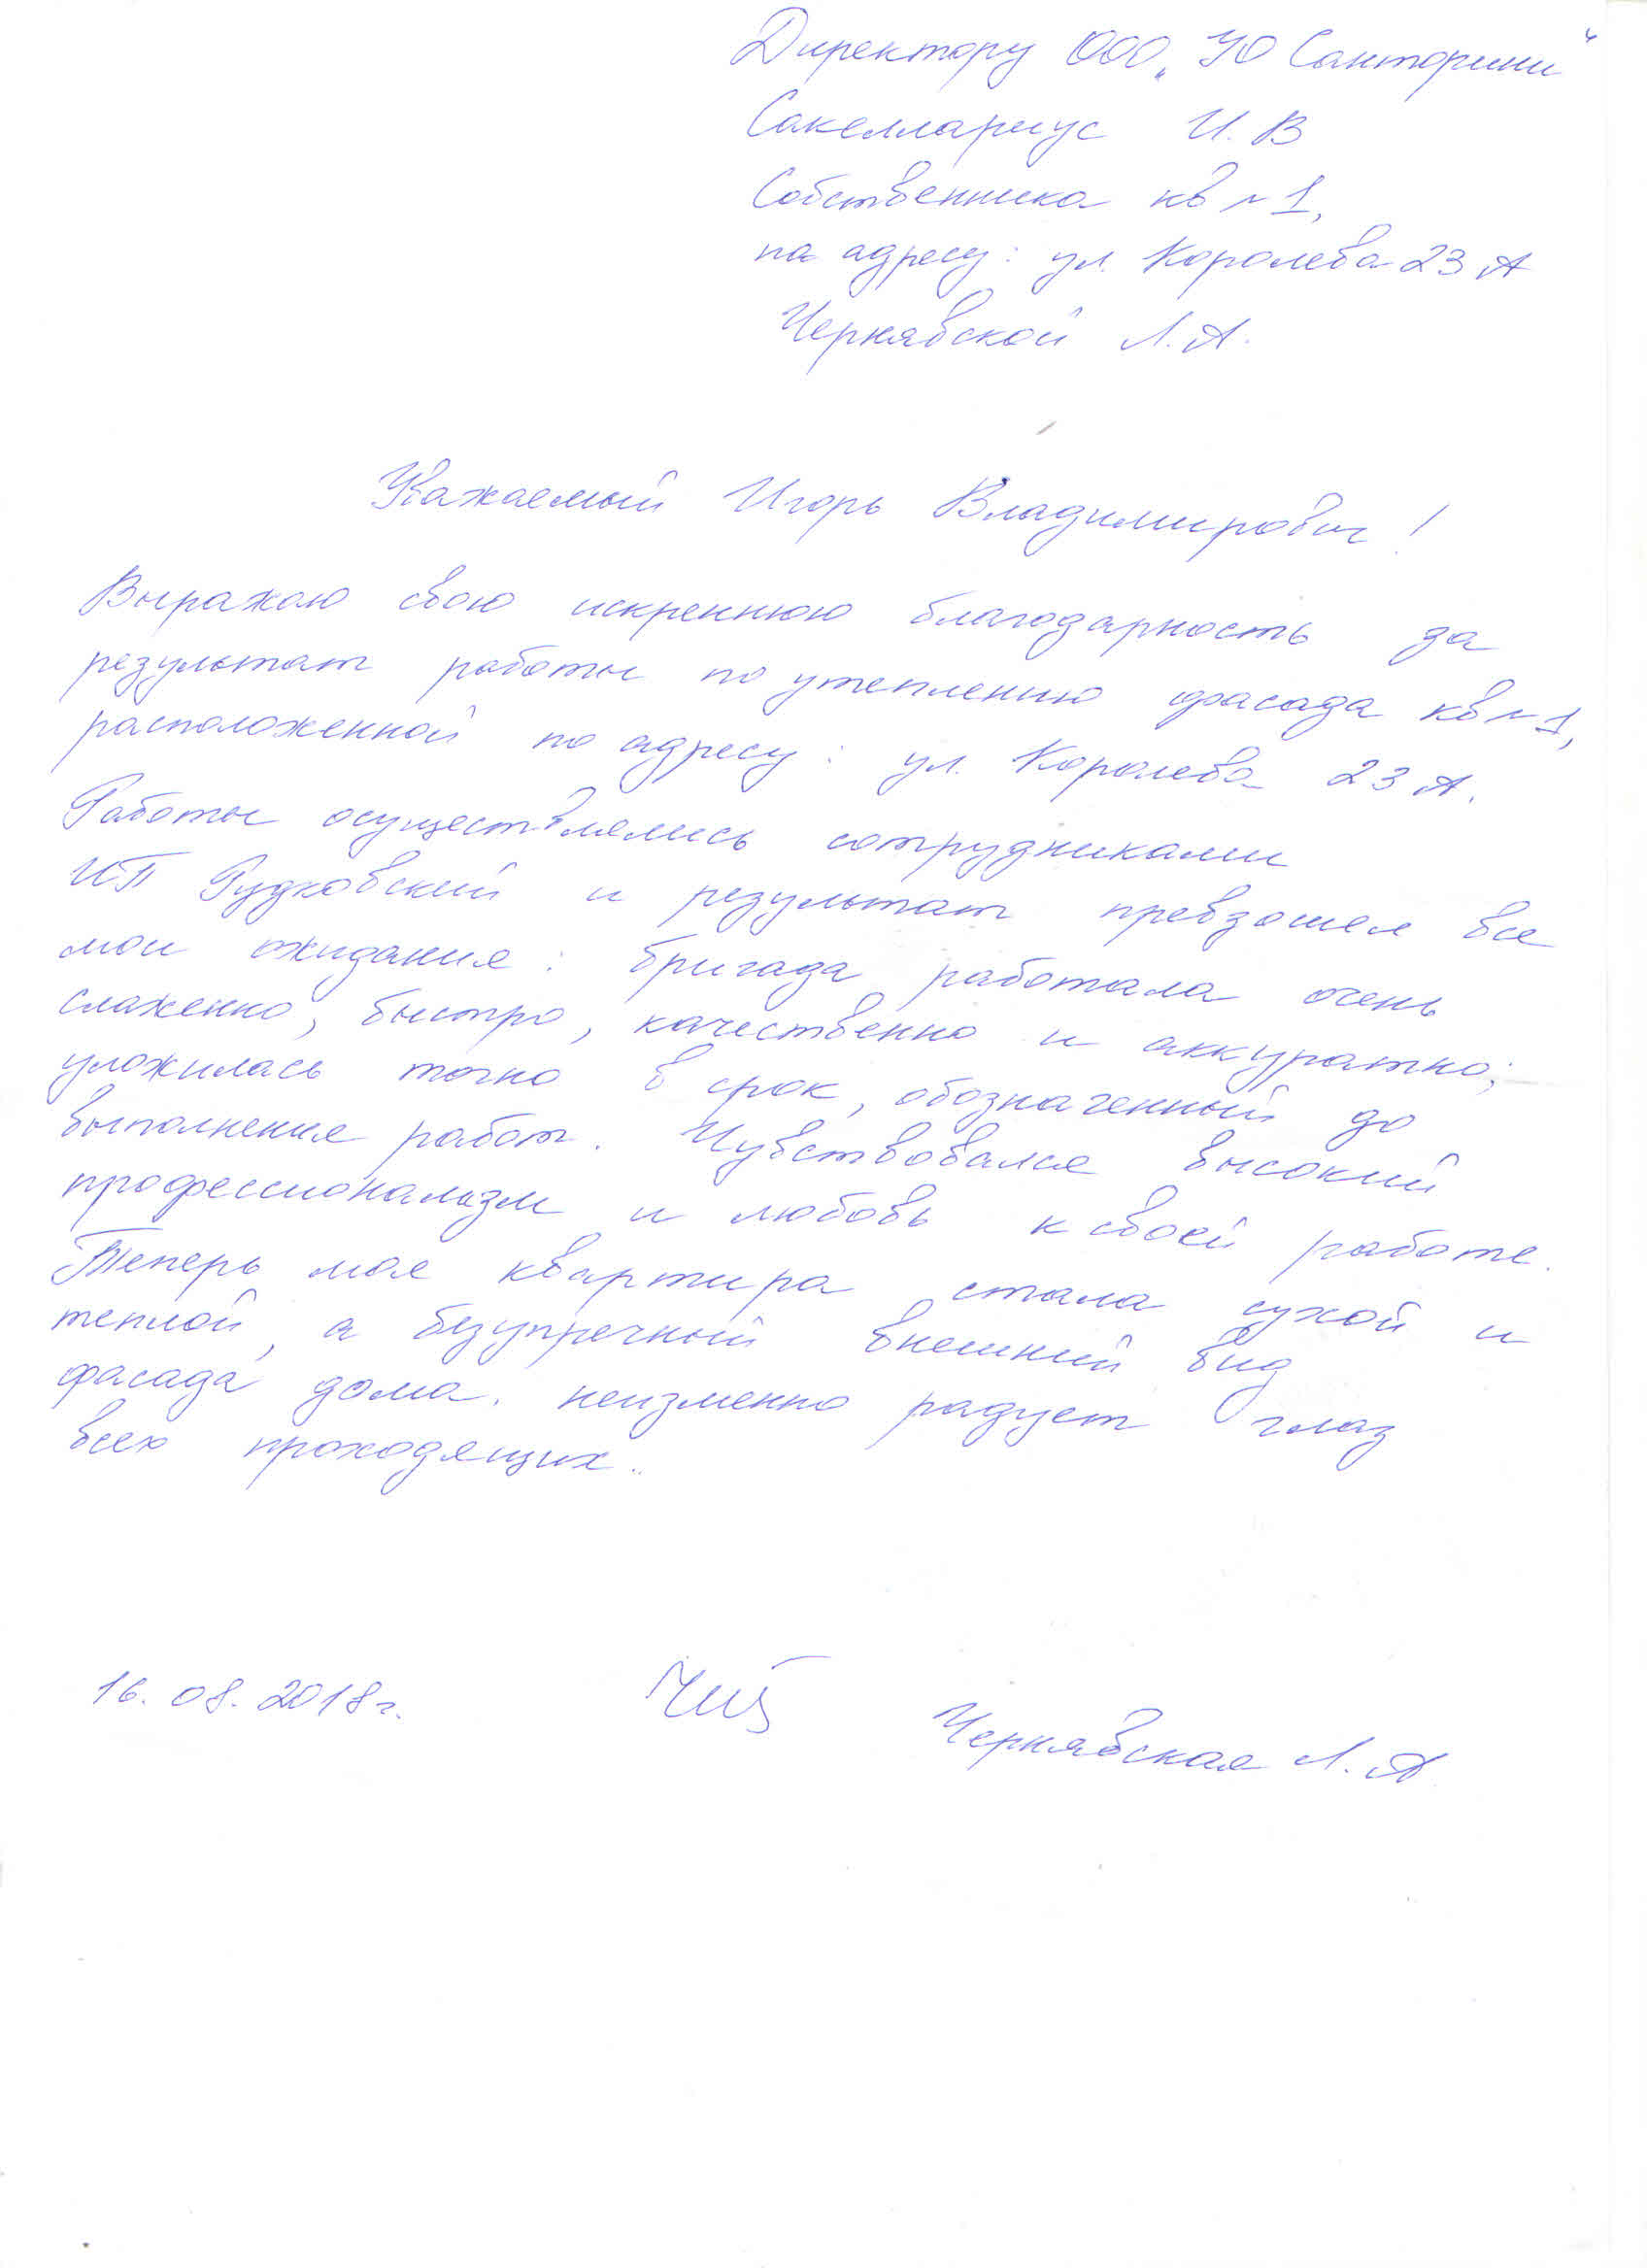 Директору ООО „УО Санторини“
Сакеллариус И.В
Собственника кв № 1,
по адресу: ул. Королева 23 А
Чернявской Л.А.
Уважаемый Игорь Владимирович!
Выражаю свою искреннюю благодарность за
результат работы по утеплению фасада кв № 1,
расположенной по адресу: ул. Королева 23 А.
Работы осуществлялись сотрудниками
ИП Рудковский и результат превзошел все
мои ожидания: бригада работала очень
слаженно, быстро, качественно и аккуратно;
уложилась точно в срок, обозначенный до
выполнения работ. Чувствовался высокий
профессионализм и любовь к своей работе.
Теперь моя квартира стала сухой и
теплой, а безупречный внешний вид
фасада дома неизменно радует глаз
всех проходящих.
16.08.2018г. Чернявская Л.А